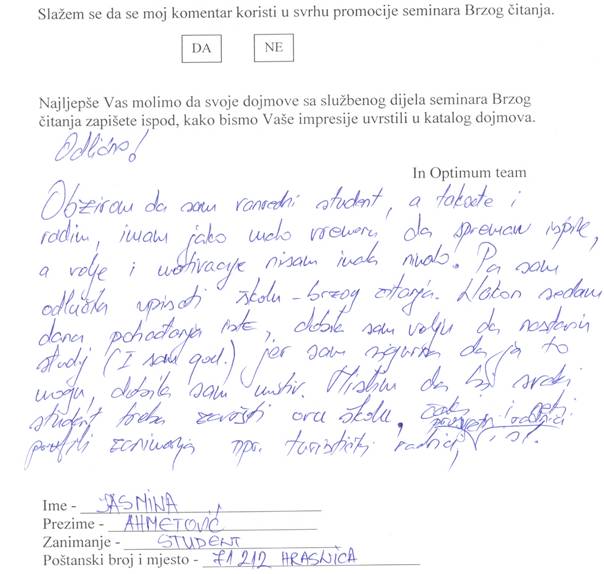 Slažem se da se moj komentar koristi u svrhu promocije seminara Brzog čitanja.
DA NE
Najljepše Vas molimo da svoje dojmove sa službenog dijela seminara Brzog
čitanja zapišete ispod, kako bismo Vaše impresije uvrstili u katalog dojmova.
Odlično!
In Optimum team
Obzirom da sam vanredni student, a takođe i
radim, imam jako malo vremena da spremam ispite,
a volje i motivacije nisam imala nimalo. Pa sam
odlučila upisati školu - brzog čitanja. Nakon sedam
dana pohađanja iste, dobila sam volju da nastavim
studij (I sam god.) jer sam sigurna da ja to
mogu, dobila sam motiv. Mislim da bi svaki
student treba završiti ovu školu, i neki
profili zanimanja npr. turistički radnici, i sl.
Ime - JASMINA
Prezime - AHMETOVIĆ
Zanimanje - STUDENT
Poštanski broj i mjesto - 71212 HRASNICA